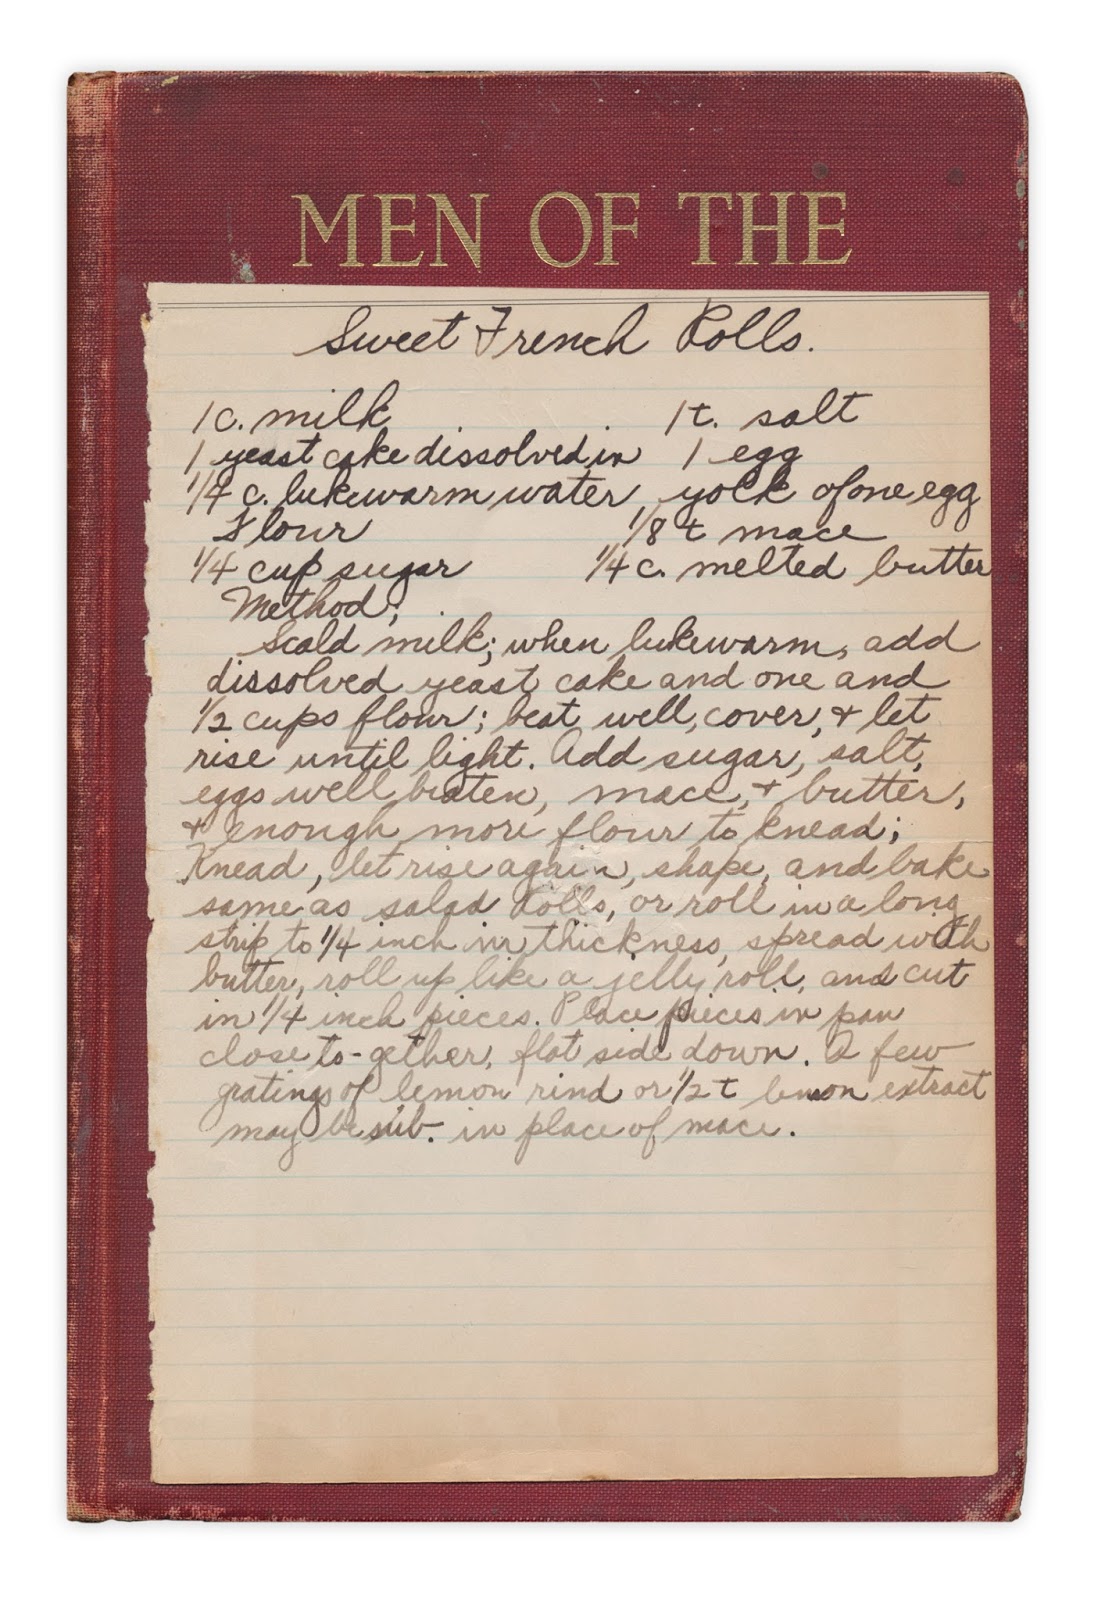 MEN OF THE
Sweet French Rolls.
1 c. milk 1 t. salt
1 yeast cake dissolved in 1 egg
1/4 c. lukewarm water, yolk of one egg
Flour 1/8 t mace
1/4 cup sugar 1/4 c. melted butter
Method;
Scald milk; when lukewarm, add
dissolved yeast cake and one and
1/2 cups flour; beat well, cover, + let
rise until light. Add sugar, salt,
eggs well beaten, mace, + butter,
+ enough more flour to knead;
Knead, let rise again, shape, and bake
same as salad Rolls, or roll in a long
strip to 1/4 inch in thickness, spread with
butter, roll up like a jelly roll, and cut
in 1/4 inch pieces. Place pieces in pan
close to-gether, flat side down. A few
gratings of lemon rind or 1/2 t lemon extract
may be sub. in place of mace.